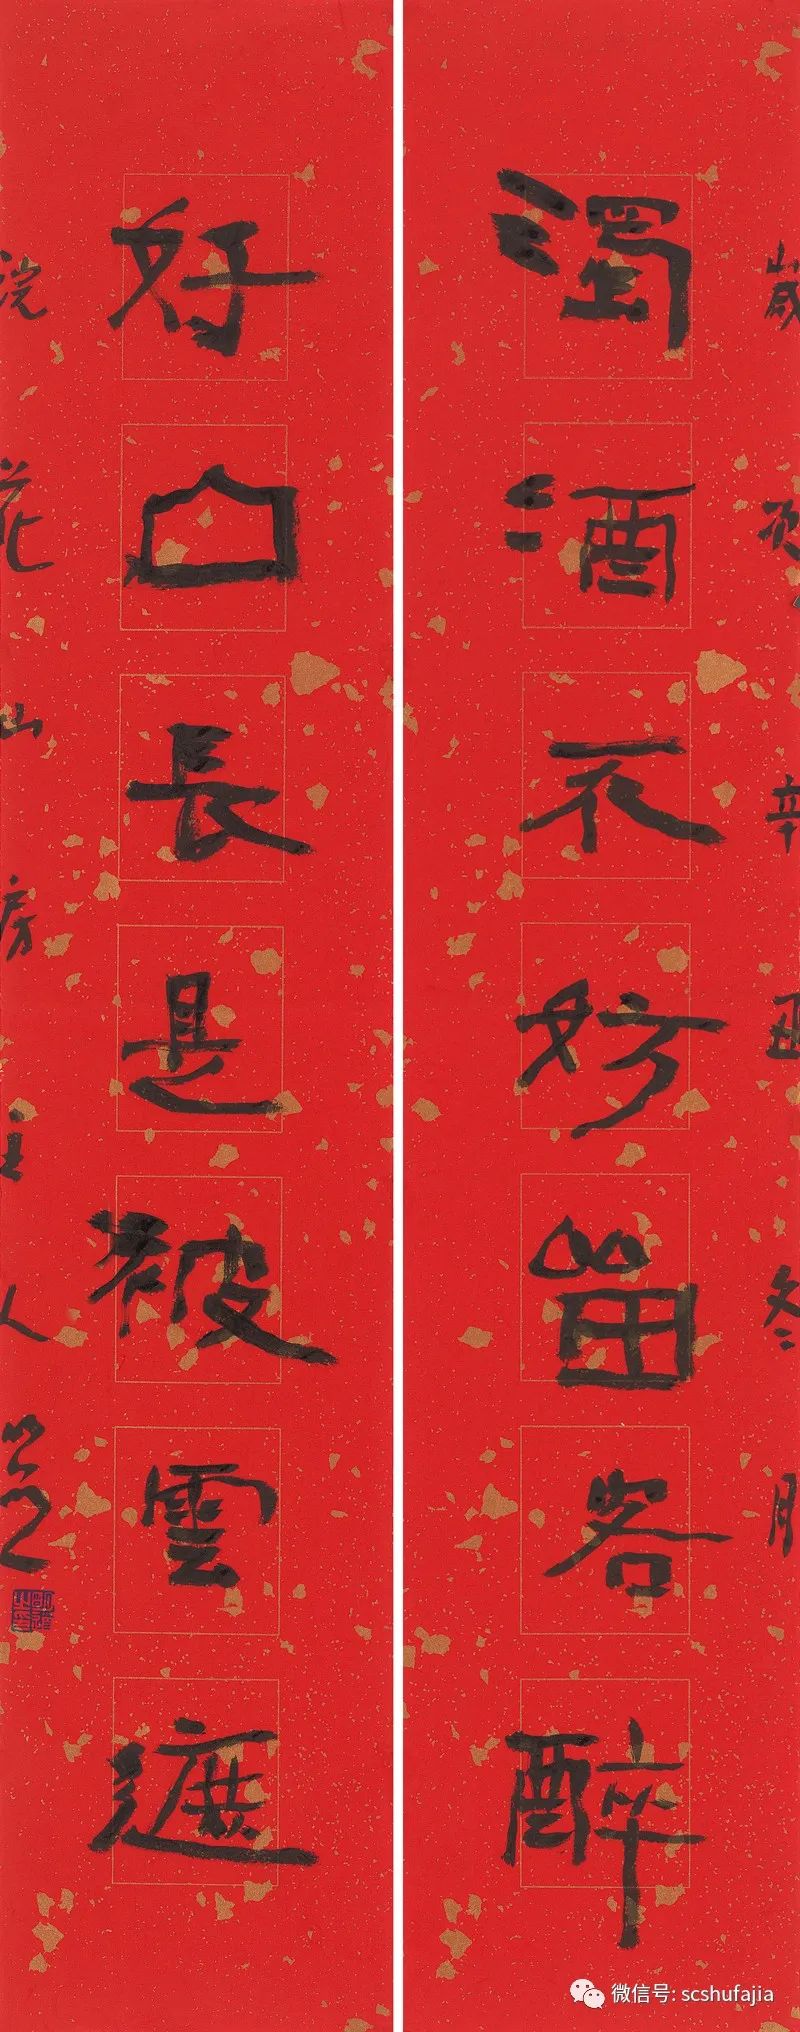 歲次辛丑冬月
濁酒不妨留客醉
好山長是被雲遮
浣花山房主人
微信号: scshufajia